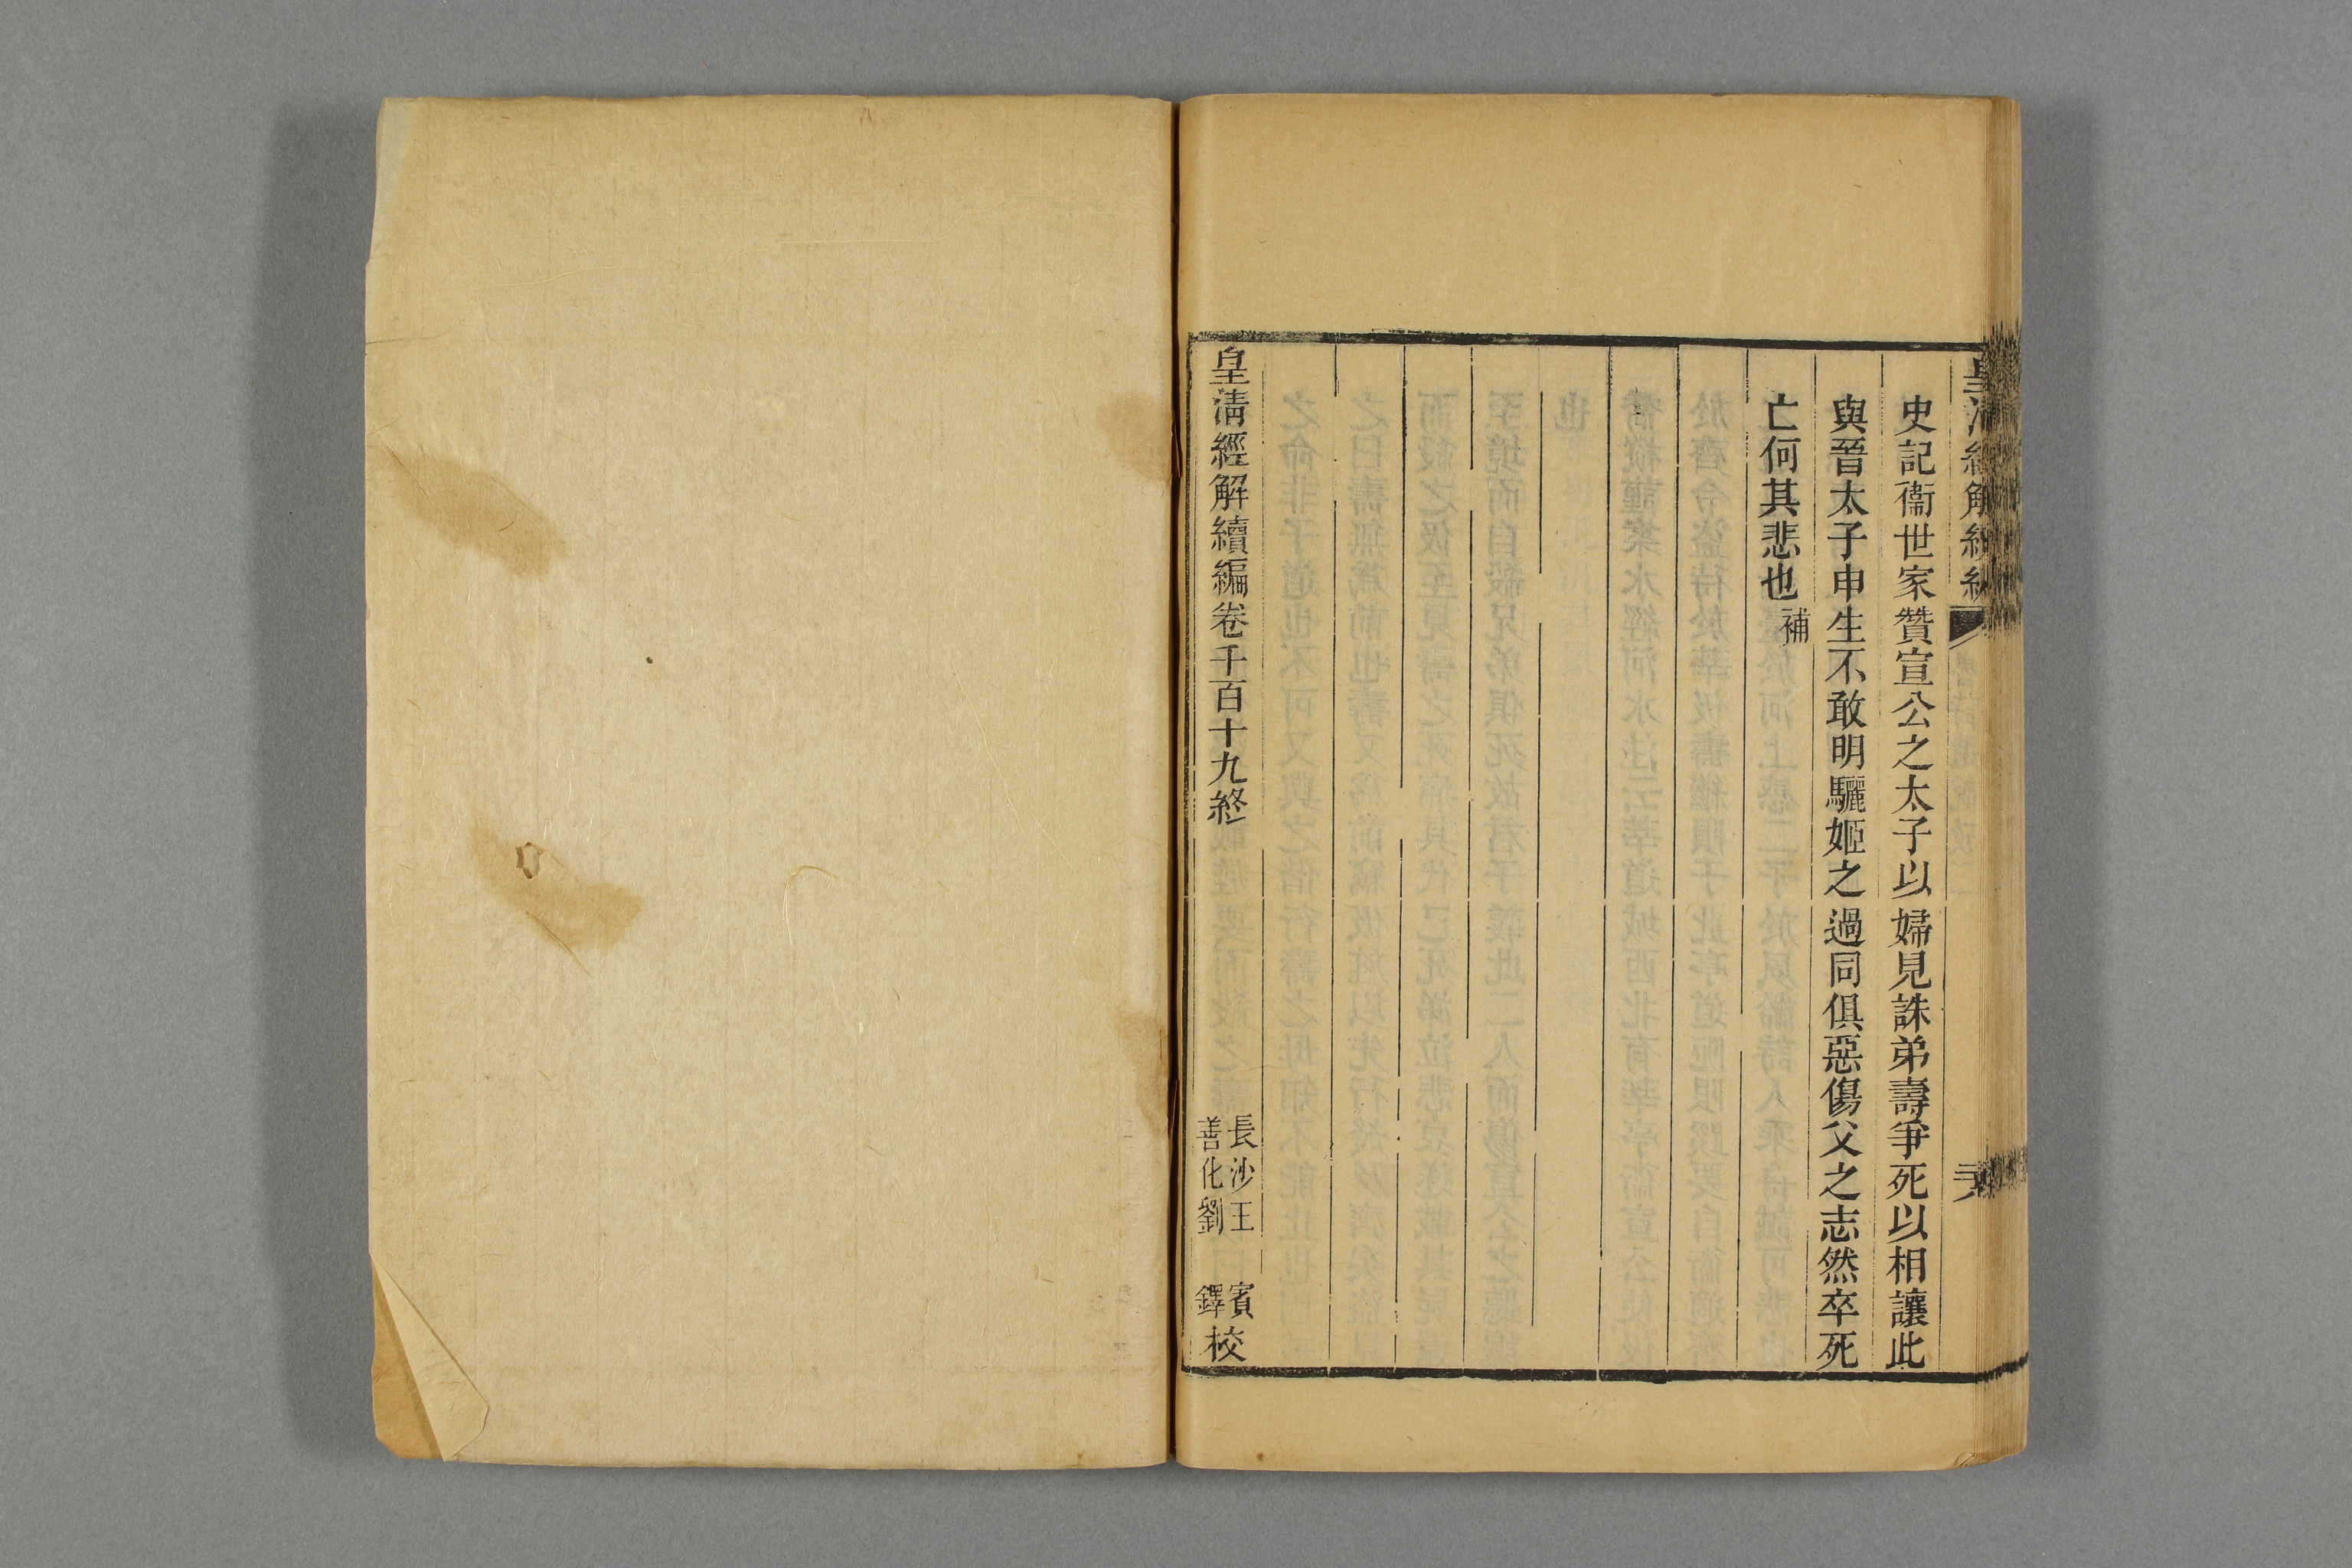 皇清經解續編
史記衞世家贊宣公之太子以婦見誅弟壽爭死以相讓此
與晉太子申生不敢明驪姬之過同俱惡傷父之志然卒死
亡何其悲也補
皇清經解續編卷千百十九終
長沙王賓
善化劉鐸校